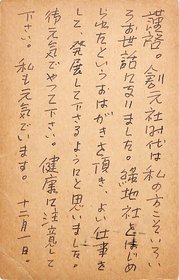 謹啓。創元社時代は私の方こそいろい
ろお世話になりました。緑地社をはじめ
られたというおはがきを頂き、よい仕事を
して、発展して下さるようにと思いました。
御元気でやって下さい。健康に注意して
下さい。私も元気でいます。 十二月一日。